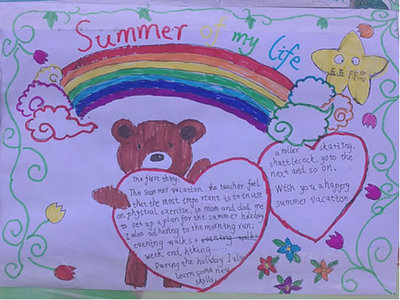 Summer of my life
The first thing,
The summer vacation, the teacher feel
that the most important is to insist
on physical exercise, so mom and dad me
to set up a plan for the summer holiday
I also adhering to the morning run,
evening walks,
week end, hiking...
During the holiday I also
learn some new
skills
a roller skating,
shuttlecock, go to the
next and so on.
Wish you a happy
summer vacation